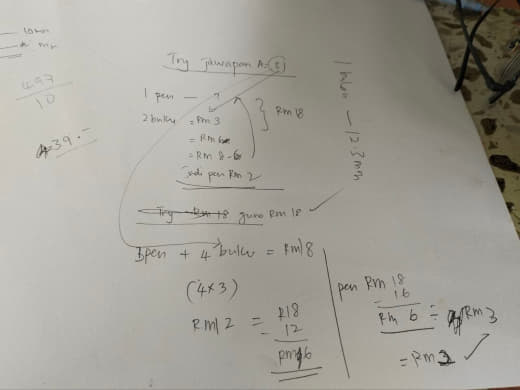 497
10
39.-
Try jawapan A = 3
1 pen — ?
2 buku = RM 3
= RM 6
= RM 8 - 6
} RM 18
jadi pen RM 2
Try RM 18 guna RM 18
3pen + 4 buku = RM18
(4x3)
RM12 = R18
- 12
RM 6
pen RM 18
- 16
RM 6 = RM 3
= RM 3 ✓